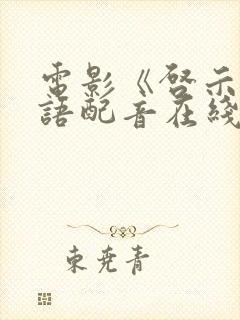 電影《啓示
語配音在綫
東堯青